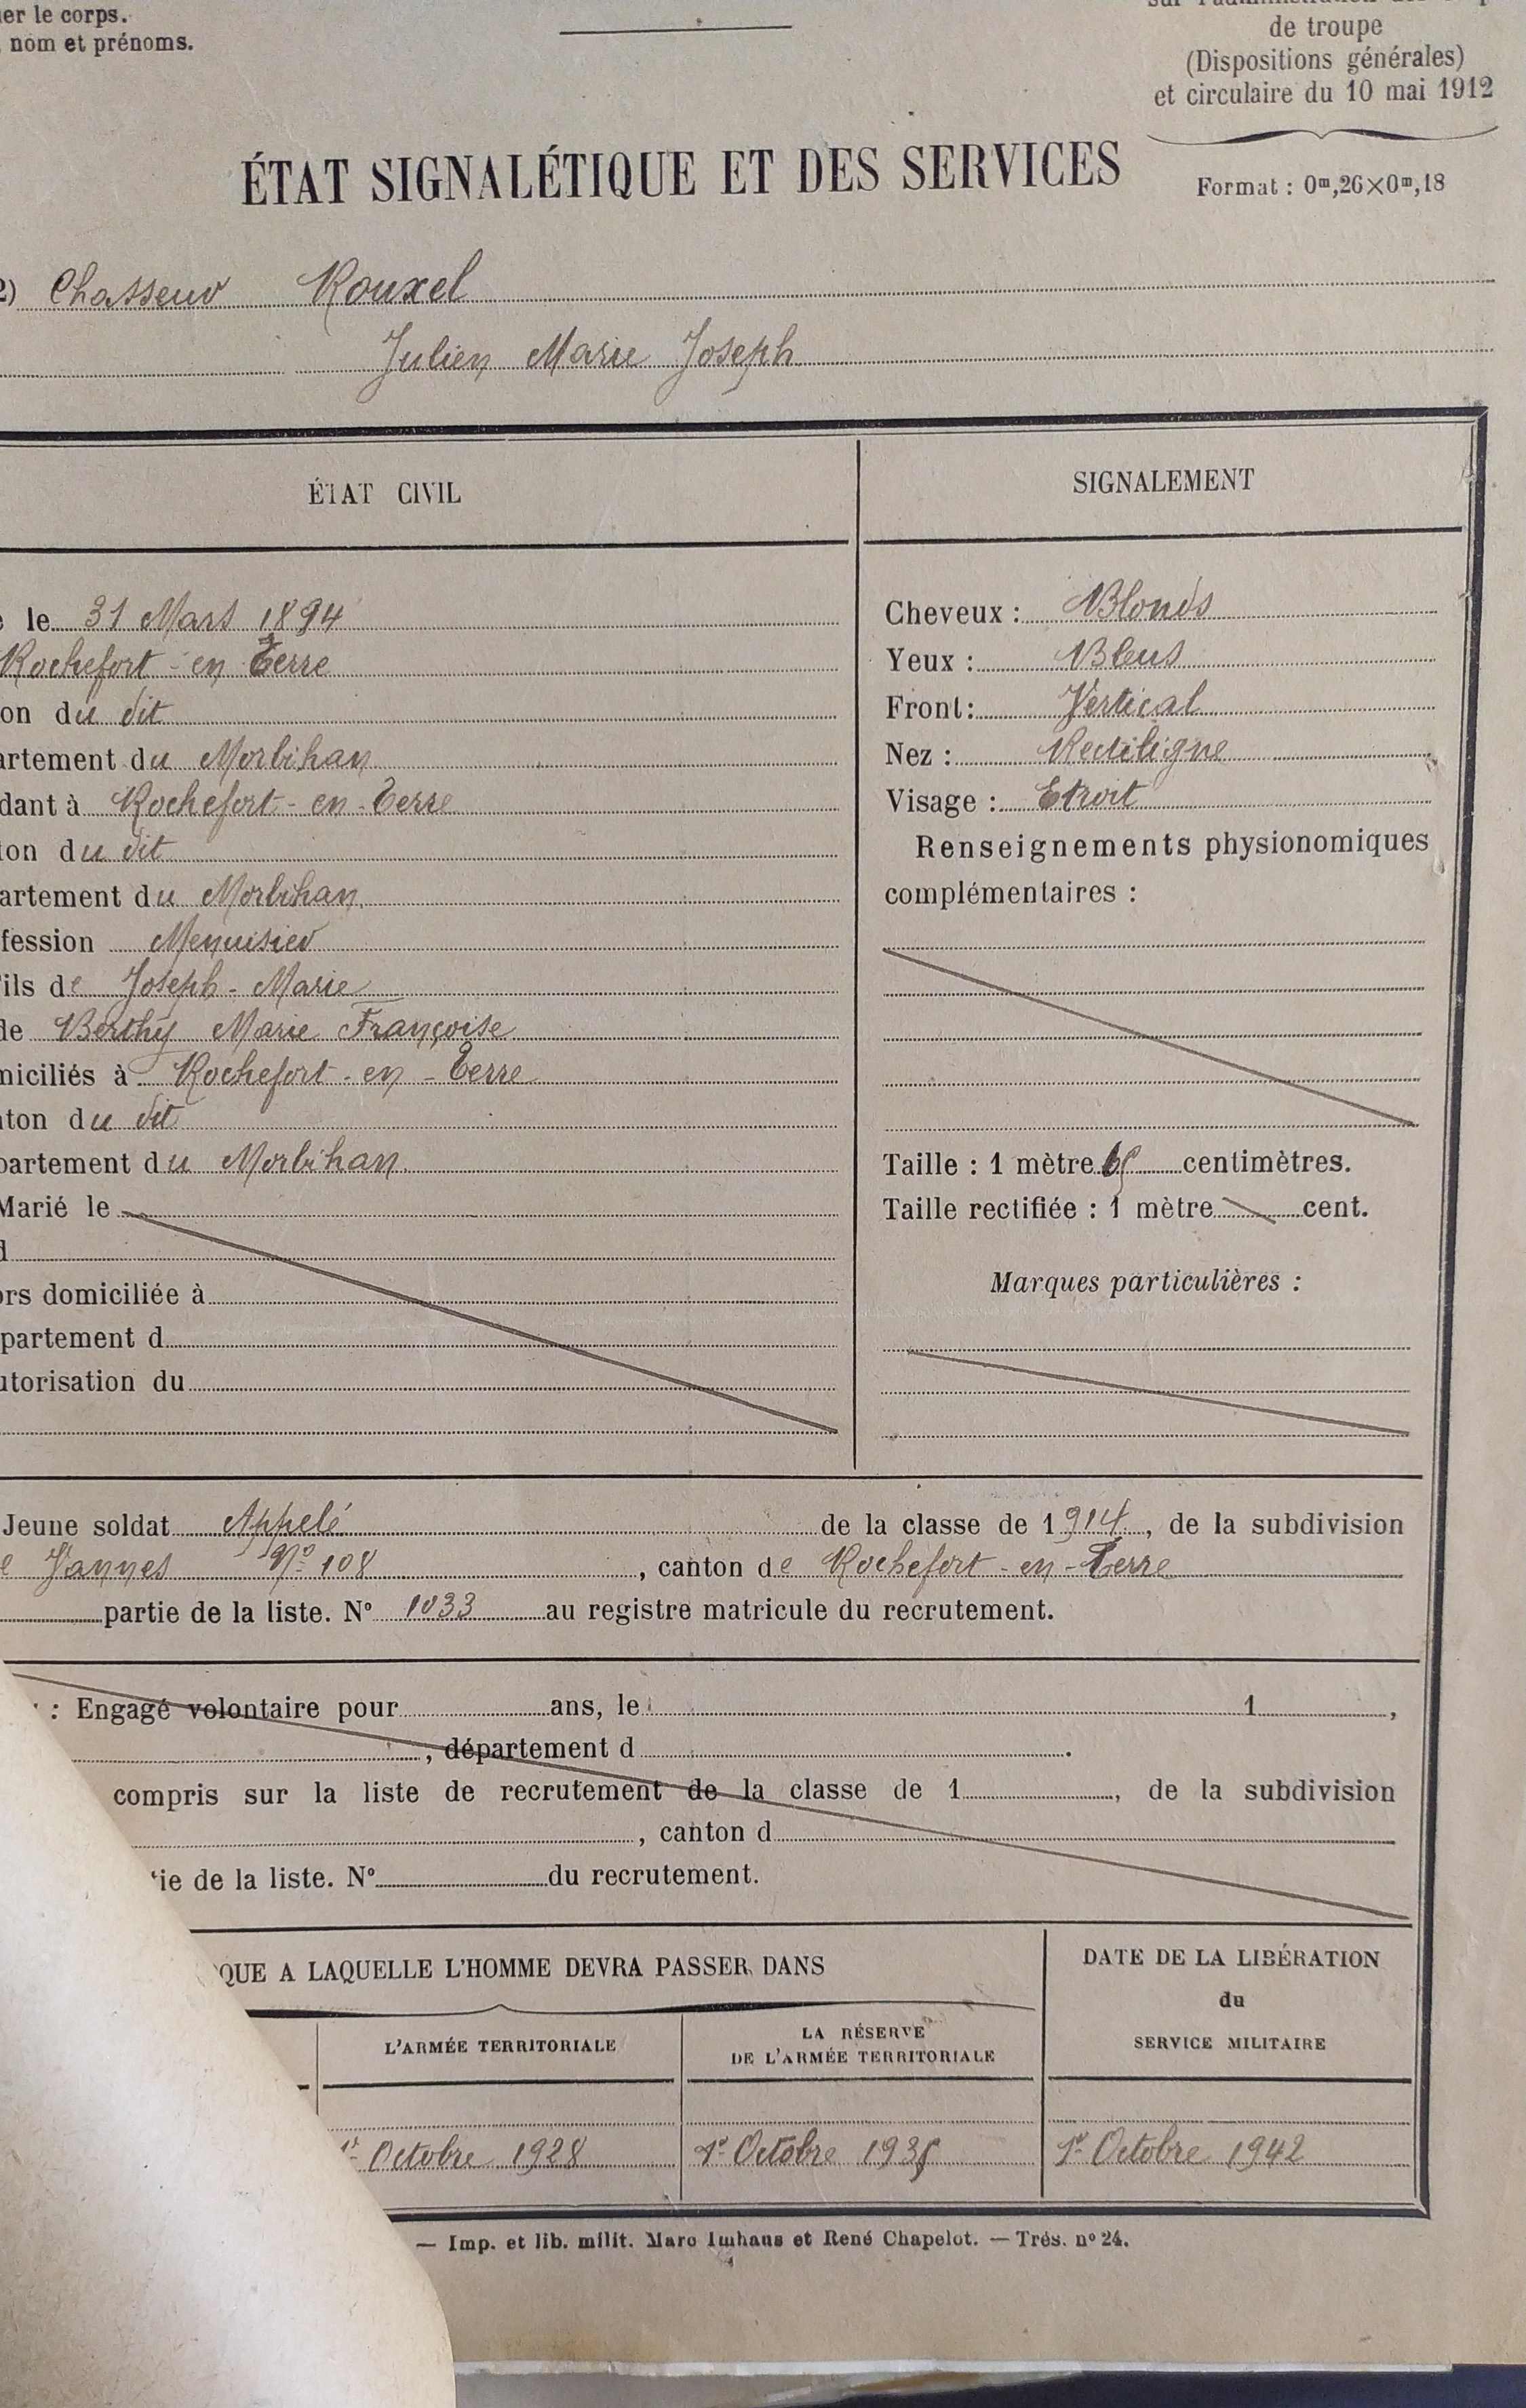 er le corps.
nom et prénoms.
de troupe
(Dispositions générales)
et circulaire du 10 mai 1912
ÉTAT SIGNALÉTIQUE ET DES SERVICES
Format : 0m,26×0m,18
2) Chasseur Rouxel
Julien Marie Joseph
ÉTAT CIVIL
le 31 Mars 1894
Rochefort-en-Terre
on du dit
artement du Morbihan
dant à Rochefort-en-Terre
ion du dit
artement du Morbihan
fession Menuisier
ils de Joseph-Marie
de Berthy Marie Françoise
miciliés à Rochefort-en-Terre
ton du dit
partement du Morbihan
Marié le
d
ors domiciliée à
partement d
utorisation du
SIGNALEMENT
Cheveux : Blonds
Yeux : Bleus
Front : Vertical
Nez : Rectiligne
Visage : Etroit
Renseignements physionomiques
complémentaires :
Taille : 1 mètre 65 centimètres.
Taille rectifiée : 1 mètre cent.
Marques particulières :
Jeune soldat Appelé de la classe de 1914, de la subdivision
e Vannes No 108, canton de Rochefort-en-Terre
partie de la liste. N° 1033 au registre matricule du recrutement.
: Engagé volontaire pour ans, le 1 ,
, département d .
compris sur la liste de recrutement de la classe de 1 , de la subdivision
, canton d
ie de la liste. N° du recrutement.
QUE A LAQUELLE L'HOMME DEVRA PASSER DANS
L'ARMÉE TERRITORIALE
LA RÉSERVE
DE L'ARMÉE TERRITORIALE
DATE DE LA LIBÉRATION
du
SERVICE MILITAIRE
1er Octobre 1928
1er Octobre 1935
1er Octobre 1942
— Imp. et lib. milit. Marc Imhaus et René Chapelot. — Trés. n° 24.